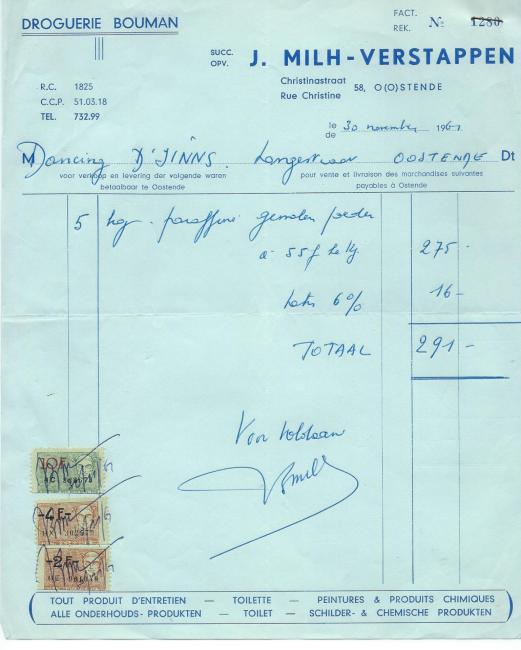 DROGUERIE BOUMAN
FACT.
REK. № 1280
SUCC.
OPV. J. MILH-VERSTAPPEN
Christinastraat
Rue Christine 58, O(O)STENDE
R.C. 1825
C.C.P. 51.03.18
TEL. 732.99
le
de 30 november 1961
M Dancing D'JINNS. Langestraat OOSTENDE Dt
voor verkoop en levering der volgende waren
betaalbaar te Oostende
pour vente et livraison des marchandises suivantes
payables à Ostende
5 kg. paraffine gemalen poeder
a 55 f le kg. 275 -
taks 6% 16 -
TOTAAL 291 -
Voor voldaan
10F
-4Fr
-2Fr
TOUT PRODUIT D'ENTRETIEN — TOILETTE — PEINTURES & PRODUITS CHIMIQUES
ALLE ONDERHOUDS- PRODUKTEN — TOILET — SCHILDER- & CHEMISCHE PRODUKTEN